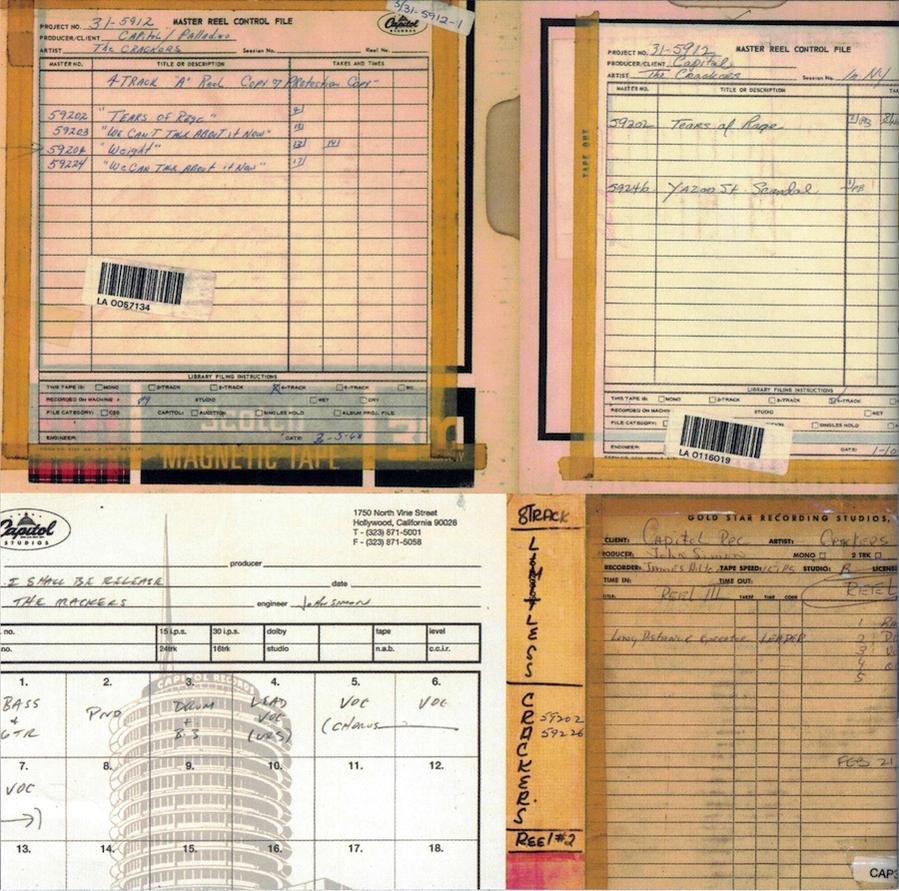 PROJECT NO. 31-5912 MASTER REEL CONTROL FILE
5/31-5912-1
Capitol RECORDS
PRODUCER/CLIENT Capitol / Palladino
ARTIST The CRACKERS Session No. Reel No.
MASTER NO. TITLE OR DESCRIPTION TAKES AND TIMES
4-TRACK "A" Reel Copy & Protection Copy"
59202 "TEARS OF Rage"
59203 "WE CAN'T TALK ABOUT it NOW"
59204 "Weight"
59224 "We CAN TALK ABOUT it Now"
LA 0057134
LIBRARY FILING INSTRUCTIONS
THIS TAPE IS: MONO 2-TRACK 3-TRACK 4-TRACK 8-TRACK
RECORDED ON MACHINE # 89 STUDIO WET DRY
FILE CATEGORY: CSS CAPITOL: AUDITION SINGLES HOLD ALBUM PROJ. FILE
ENGINEER: DATE: 2-5-68
SCOTCH 3m
MAGNETIC TAPE
TAPE OUT
PROJECT NO. 31-5912 MASTER REEL CONTROL FILE
PRODUCER/CLIENT Capitol
ARTIST The Crackers Session No. In NY
MASTER NO. TITLE OR DESCRIPTION
59202 Tears of Rage
59246 Yazoo St. Scandal
LIBRARY FILING INSTRUCTIONS
THIS TAPE IS: MONO 2-TRACK 3-TRACK 4-TRACK
RECORDED ON MACHIN STUDIO WET
FILE CATEGORY: SINGLES HOLD
LA 0116019
ENGINEER: DATE: 1-10
Capitol
STUDIOS
1750 North Vine Street
Hollywood, California 90028
T - (323) 871-5001
F - (323) 871-5058
producer
I SHALL BE RELEASE date
THE MACKERS engineer John Simon
no. 15 i.p.s. 30 i.p.s. dolby tape level
no. 24trk 16trk studio n.a.b. c.c.i.r.
CAPITOL RECORDS
1. 2. 3. 4. 5. 6.
BASS + GTR PNO DRUM + B.3 LEAD VOC (VRS) VOC (CHORUS VOC
7. 8. 9. 10. 11. 12.
VOC
13. 14. 15. 16. 17. 18.
8TRACK
LIMITLESS
CRACKERS
59202
59226
REEL #2
GOLD STAR RECORDING STUDIOS,
CLIENT: Capitol Rec ARTIST: Crackers
PRODUCER: John Simon MONO 2 TRK
RECORDER: TAPE SPEED: 15 IPS STUDIO: B LICENS
TIME IN: TIME OUT:
REEL III REEL
TITLE: TAKES TIME CODE
1
Long Distance Operator LEADER 2
3
4
5
FEB 21
CAP